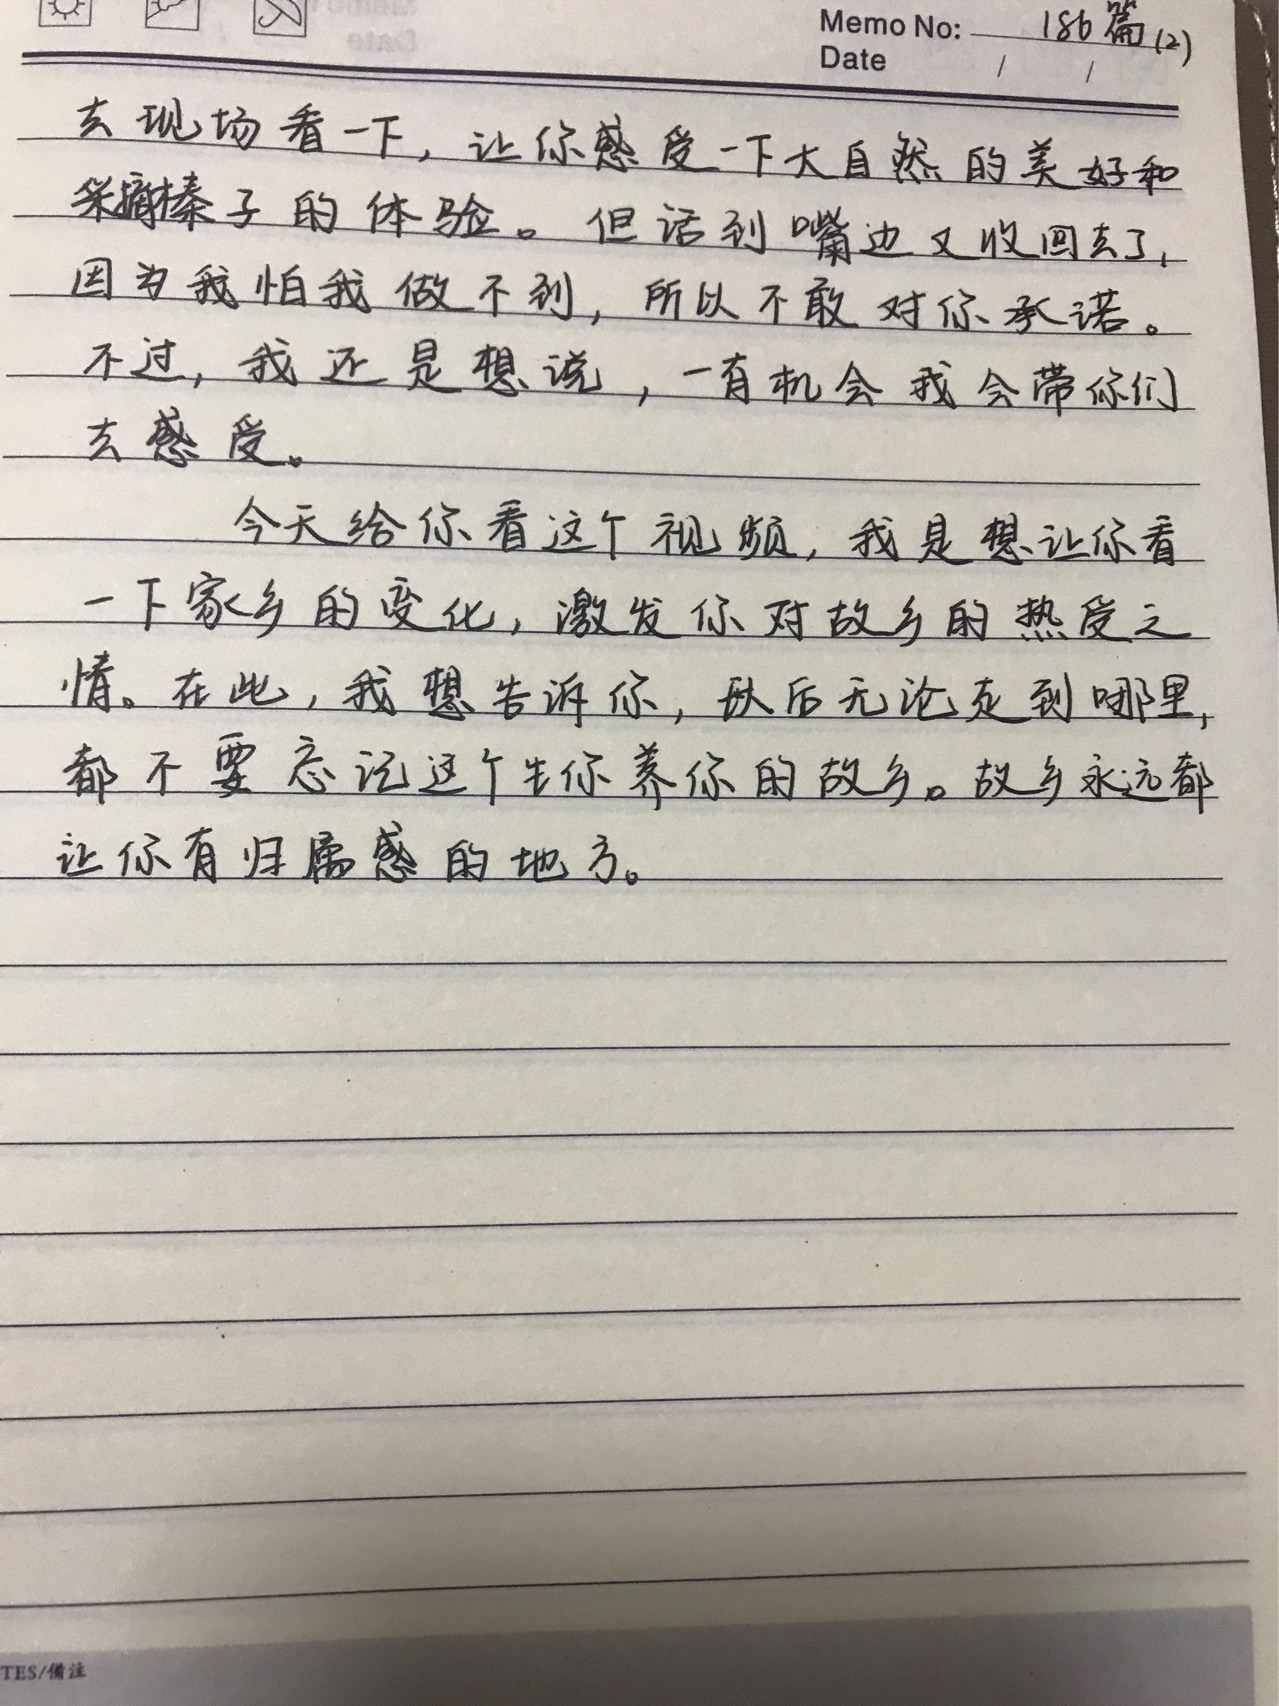 Memo No: 186篇(2)
Date / /
去现场看一下，让你感受一下大自然的美好和
采摘榛子的体验。但话到嘴边又收回去了，
因为我怕我做不到，所以不敢对你承诺。
不过，我还是想说，一有机会我会带你们
去感受。
今天给你看这个视频，我是想让你看
一下家乡的变化，激发你对故乡的热爱之
情。在此，我想告诉你，从后无论走到哪里，
都不要忘记这个生你养你的故乡。故乡永远都
让你有归属感的地方。
TES/備注